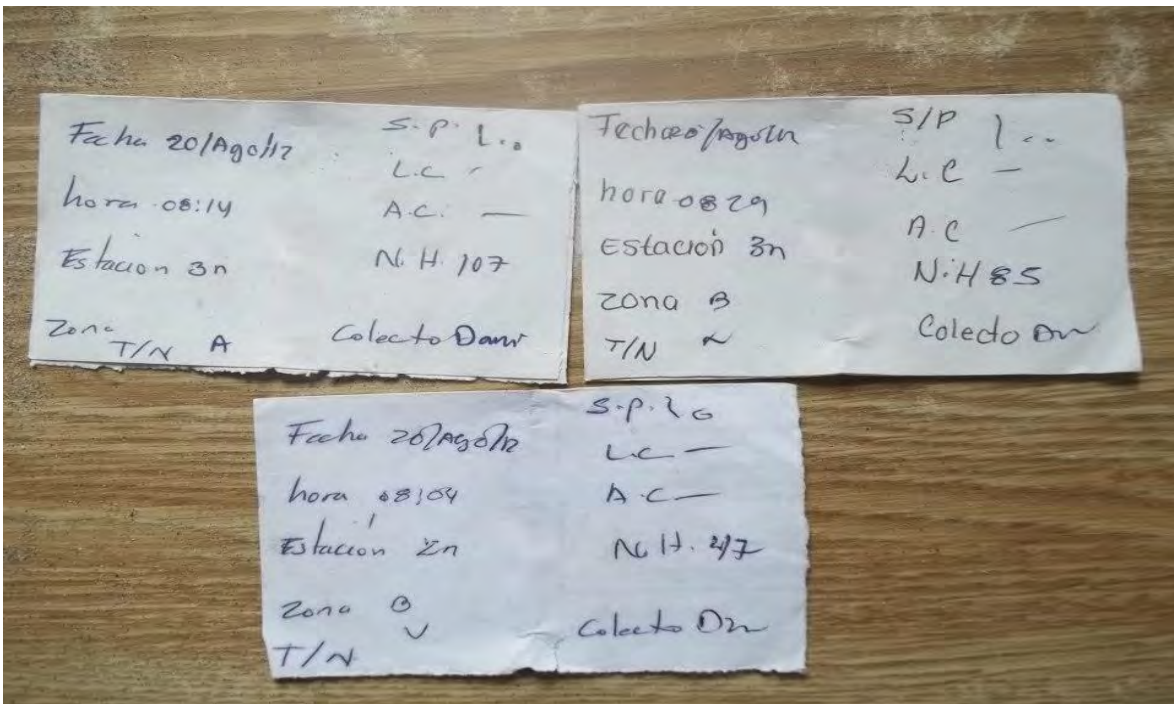 Fecha 20/Ago/12
hora 08:14
Estacion 3n
Zona
T/N A
S.P. L..
L.C -
A.C. —
N.H. 107
Colecto Dani
Fecha 20/Ago/12
hora 0829
Estación 3n
zona B
T/N ~
S/P L..
L.C —
A.C —
N.H 85
Colecto
Fecha 20/Ago/12
hora 08:04
Estación 2n
Zona B
T/N
S.P.
L.C —
A.C —
N.H. 47
Colecto